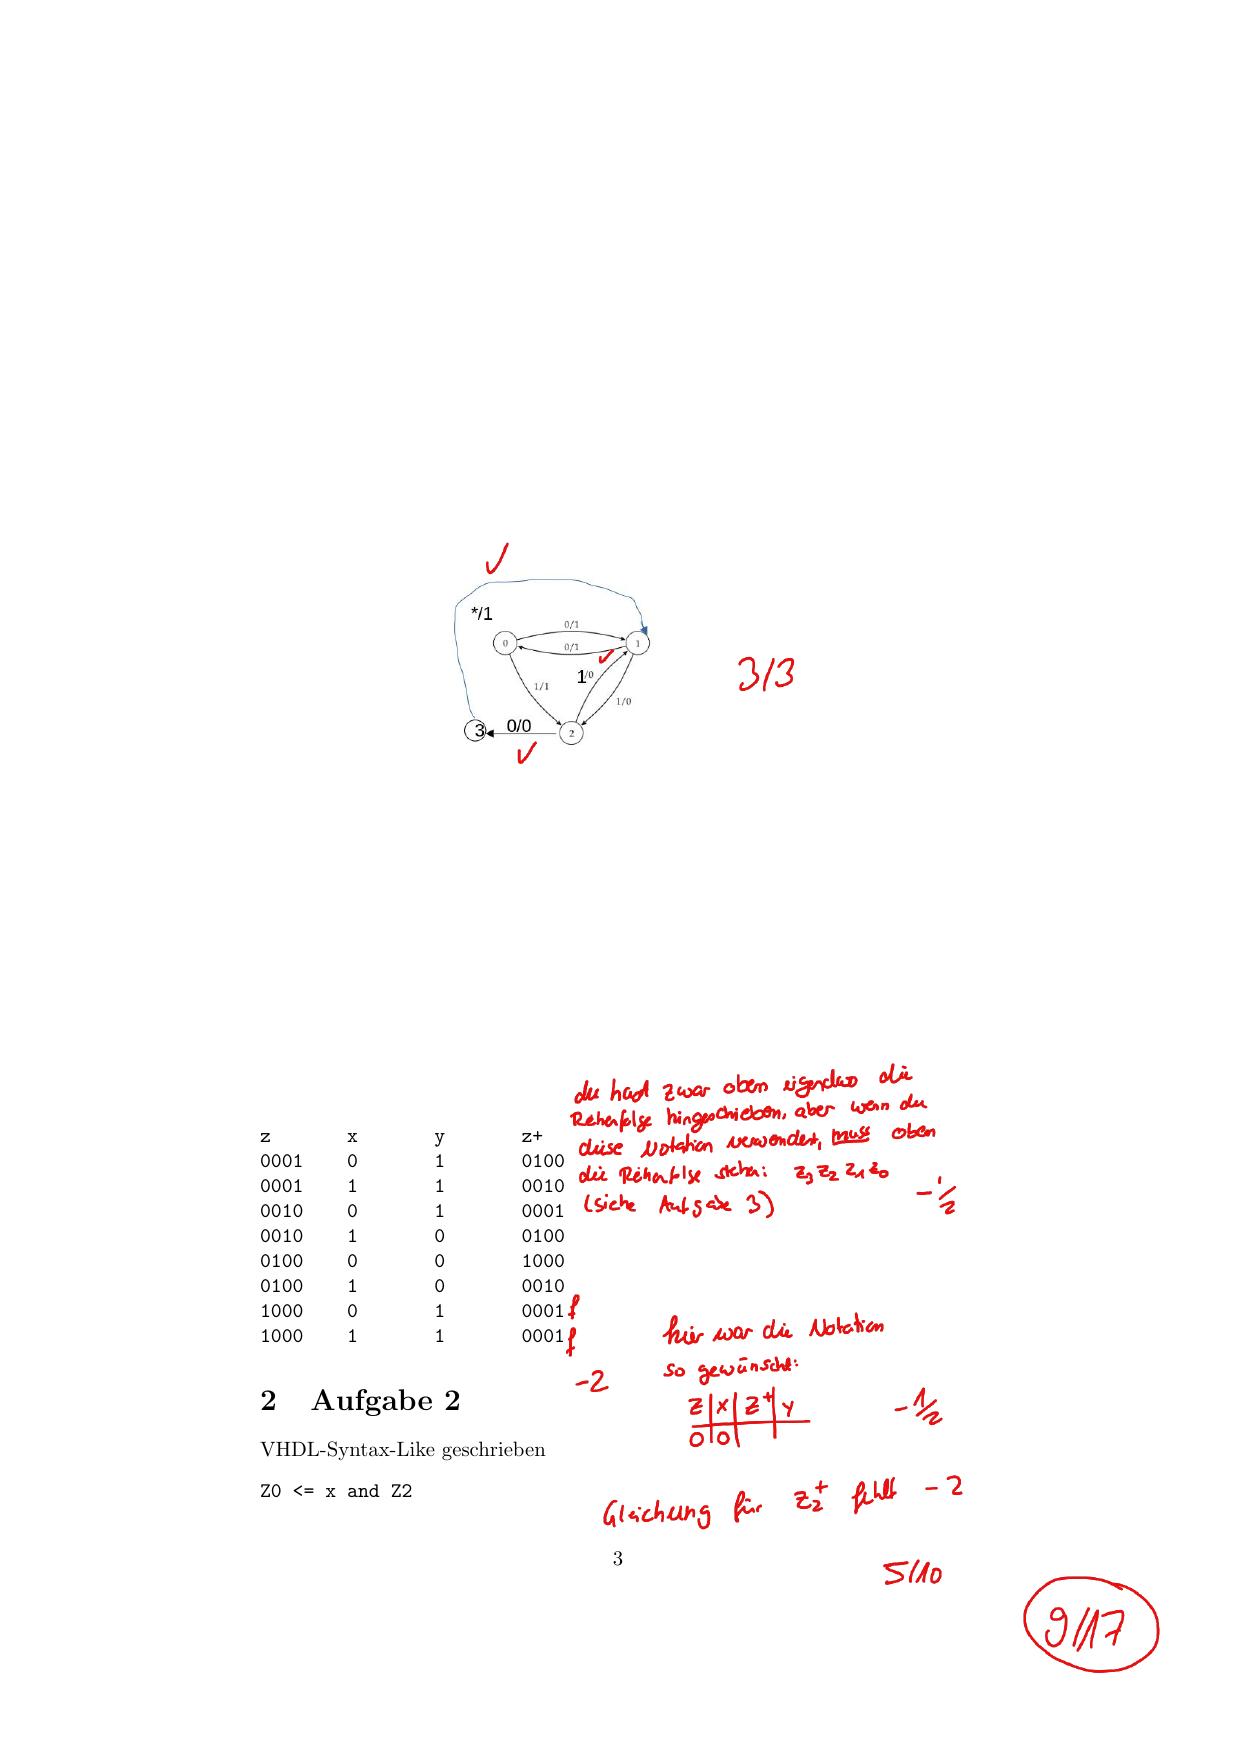 */1
0/1
0
1
0/1
1/0
1/1
1/0
3/3
3
0/0
2
du hast zwar oben irgendwo die
Reihenfolge hingeschrieben, aber wenn du
z x y z+
diese Notation verwendest, muss oben
0001 0 1 0100
die Reihenfolge stehen: z3 z2 z1 z0
0001 1 1 0010
(siehe Aufgabe 3) -1/2
0010 0 1 0001
0010 1 0 0100
0100 0 0 1000
0100 1 0 0010
1000 0 1 0001 f
1000 1 1 0001 f
hier war die Notation
so gewünscht:
-2
z | x | z+ | y
0 | 0 |
-1/2
2 Aufgabe 2
VHDL-Syntax-Like geschrieben
Z0 <= x and Z2
Gleichung für z2+ fehlt -2
3
5/10
9/17